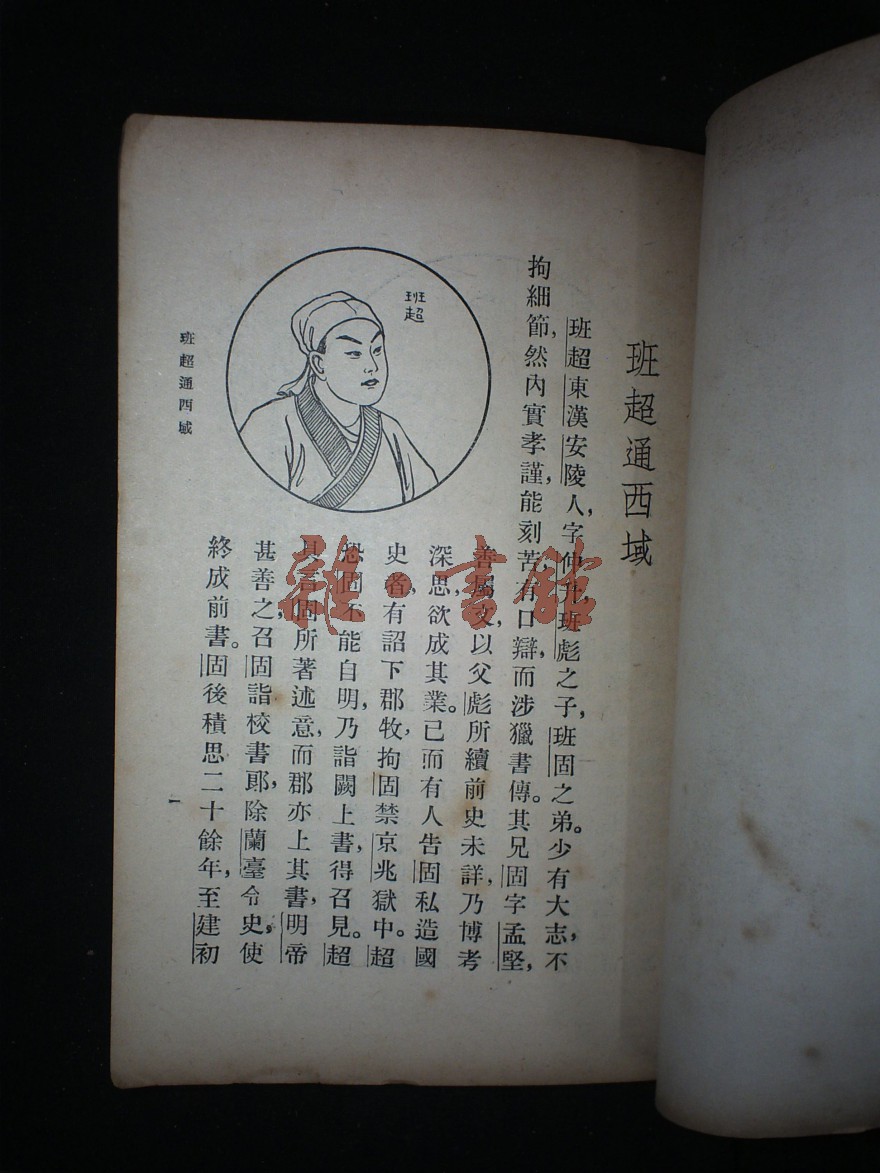 班超通西域
班超，東漢安陵人，字仲升，班彪之子，班固之弟。少有大志，不
拘細節，然內實孝謹，能刻苦，有口辯，而涉獵書傳。其兄固字孟堅，
善屬文，以父彪所續前史未詳，乃博考
深思，欲成其業。已而有人告固私造國
史者，有詔下郡牧，拘固禁京兆獄中。超
恐固不能自明，乃詣闕上書，得召見。超
具言固所著述意，而郡亦上其書，明帝
甚善之，召固詣校書郎，除蘭臺令史，使
終成前書。固後積思二十餘年，至建初
班超
班超通西域
一
雜·書館